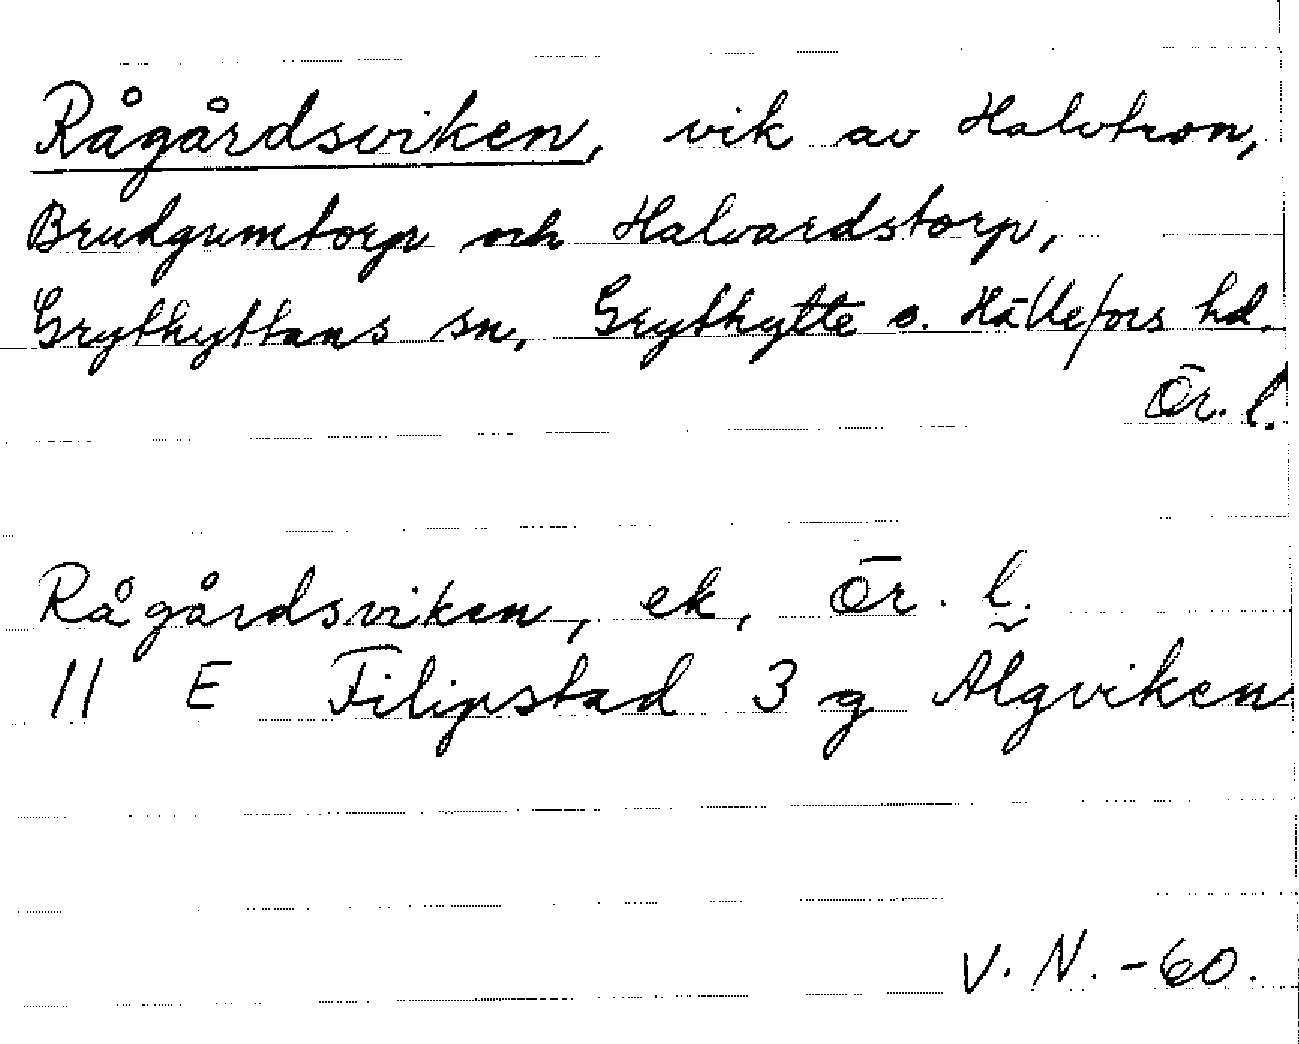 Rågårdsviken, vik av Halvtron,
Brudgumtorp och Halvardstorp,
Grythyttans sn, Grythytte o. Hällefors hd.
Ör. l.
Rågårdsviken, ek, Ör. l.
11 E Filipstad 3 g Älgviken
V. N. -60.